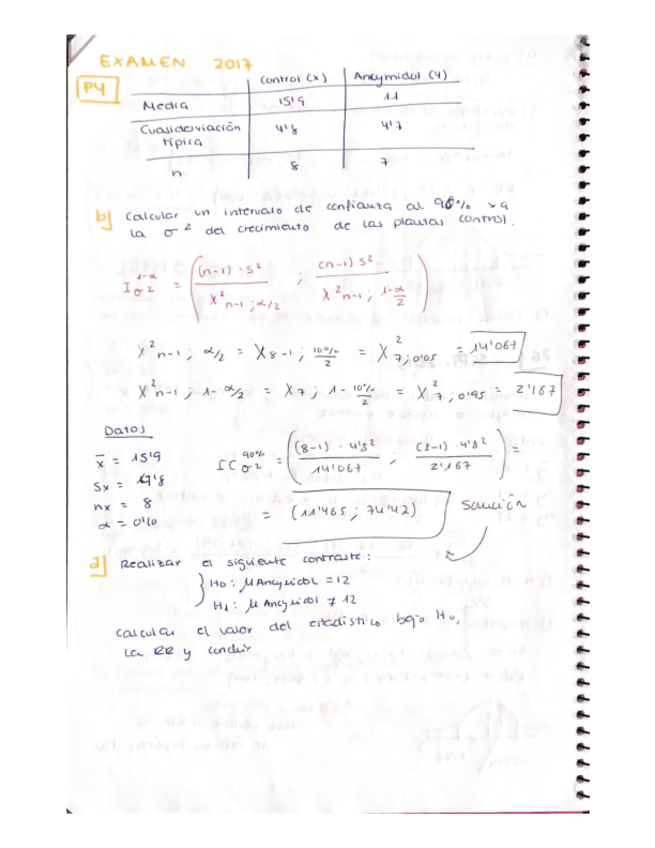 EXAMEN 2017
P4
Control (x) Ancymidol (Y)
Media 15'9 11
Cuasidesviación típica 4'8 4'7
n 8 7
b) Calcular un intervalo de confianza al 90% xa
la σ² del crecimiento de las plantas control.
I σ² ^1-α = ( (n-1) · S² / χ² n-1 ; α/2 ; (n-1) S² / χ² n-1 ; 1-α/2 )
χ² n-1 ; α/2 = χ 8-1 ; 10%/2 = χ² 7 ; 0'05 = 14'067
χ² n-1 ; 1-α/2 = χ 7 ; 1-10%/2 = χ² 7 ; 0'95 = 2'167
Datos
x̄ = 15'9
Sx = 4'8
nx = 8
α = 0'10
IC σ² ^90% = ( (8-1) · 4'8² / 14'067 ; (8-1) · 4'8² / 2'167 ) =
= (11'465 ; 74'42) Solución
a) Realizar el siguiente contraste:
H0 : μ Ancymidol = 12
H1 : μ Ancymidol ≠ 12
calcular el valor del estadístico bajo H0,
la RR y concluir